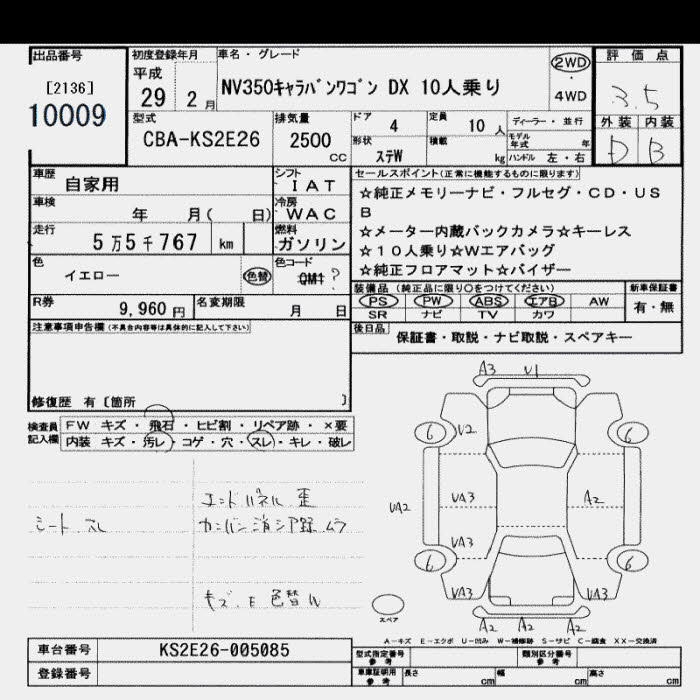 出品番号 初度登録年月 車名・グレード 評価点
[2136] 平成 2WD
10009 29 2月 NV350キャラバンワゴン DX 10人乗り ・ 3.5
4WD
型式 排気量 ドア 4 定員 10人 ディーラー・並行 外装 内装
CBA-KS2E26 2500cc 形状 ステW 積載 kg モデル年式 年 D B
ハンドル 左・右
車歴 自家用 シフト IAT セールスポイント(正常に機能するものに限ります)
車検 年 月( 日) 冷房 WAC ☆純正メモリーナビ・フルセグ・CD・US
B
走行 5万5千767 km 燃料 ガソリン ☆メーター内蔵バックカメラ☆キーレス
☆10人乗り☆Wエアバッグ
色 イエロー 色替 色コード QM1 ? ☆純正フロアマット☆バイザー
装備品(純正品に限り○をつけてください) 新車保証書
R券 9,960円 名変期限 月 日 PS PW ABS エアB AW 有・無
SR ナビ TV カワ
注意事項申告欄(不具合内容等は具体的に記入して下さい) 後日品 保証書・取説・ナビ取説・スペアキー
修復歴 有〔箇所 〕
検査員記入欄 FW キズ・飛石・ヒビ割・リペア跡・×要
内装 キズ・汚レ・コゲ・穴・スレ・キレ・破レ
A3 U1
6 U2 6
エンドパネル 歪
シート スレ カンバン消シア録 ムラ
UA2 UA3 A2
UA3
6 6
キズ、E 色替
UA3 UA3
スペア A2 A2 A2
A-キズ E-エクボ U-凹み W-補修跡 S-サビ C-腐食 XX-交換済
車台番号 KS2E26-005085 型式指定番号 参考 類別区分番号 参考
登録番号 車庫証明用 参考 長さ cm 幅 cm 高さ cm